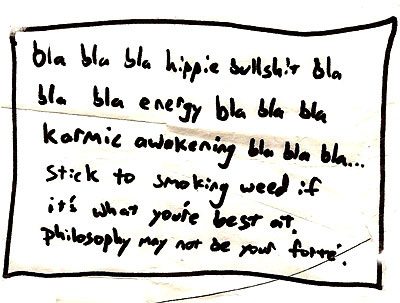 bla bla bla hippie bullshit bla
bla bla energy bla bla bla
karmic awakening bla bla bla...
stick to smoking weed if
it's what you're best at.
philosophy may not be your forté.